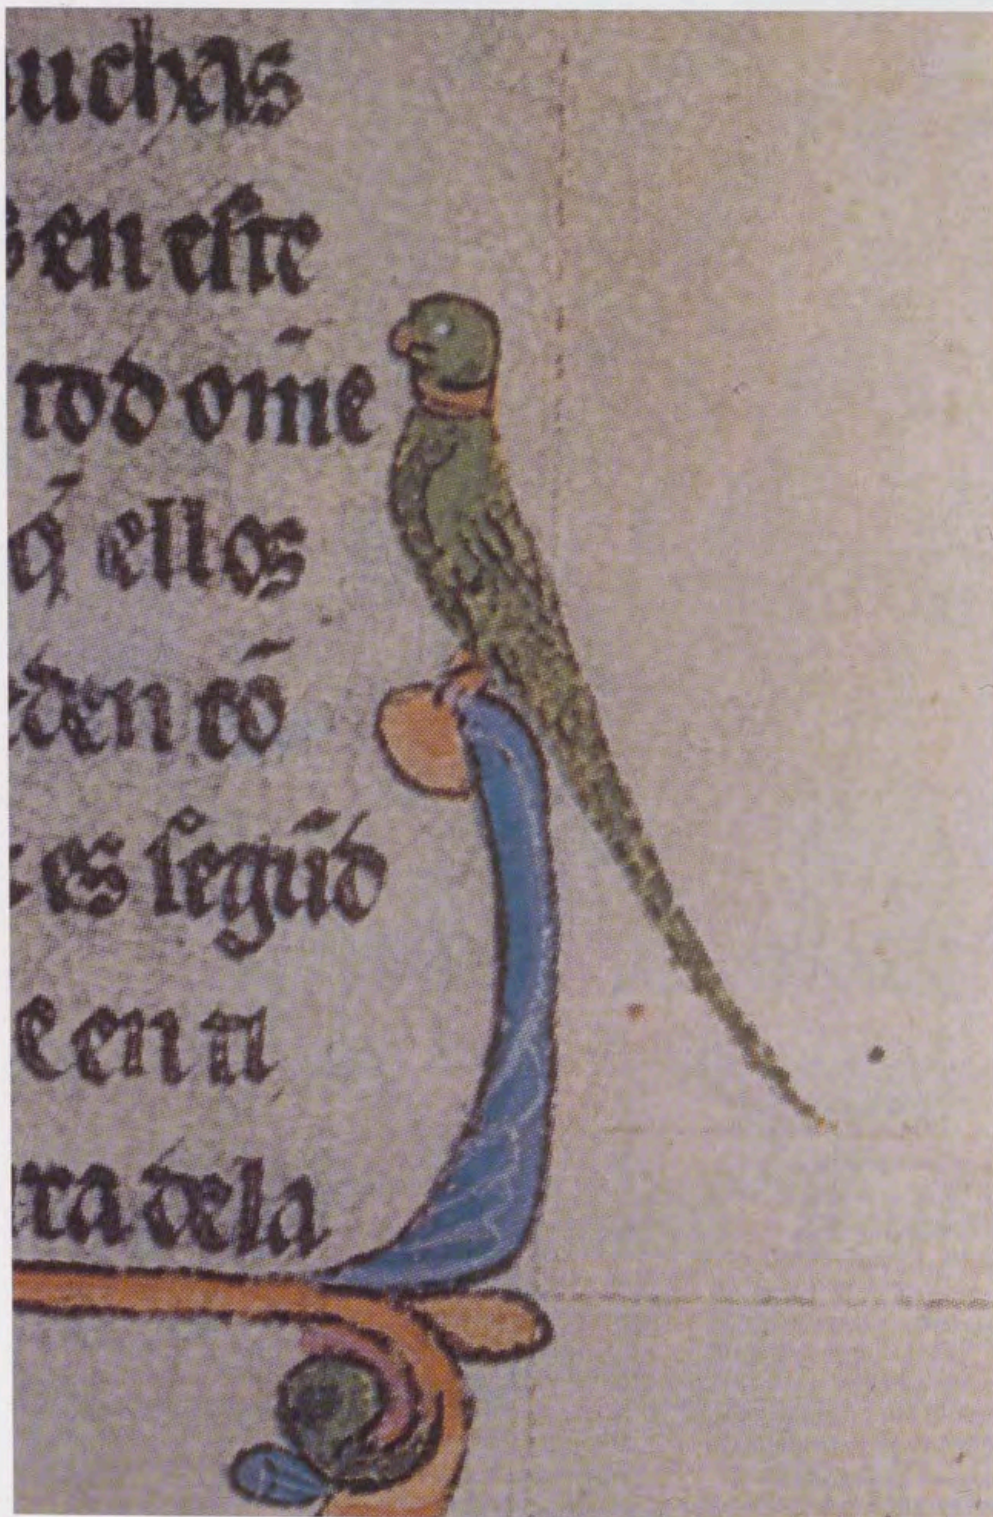 uchas
en este
tod om̄e
q̄ ellos
eden cō
es segūd
e en ti
ra dela